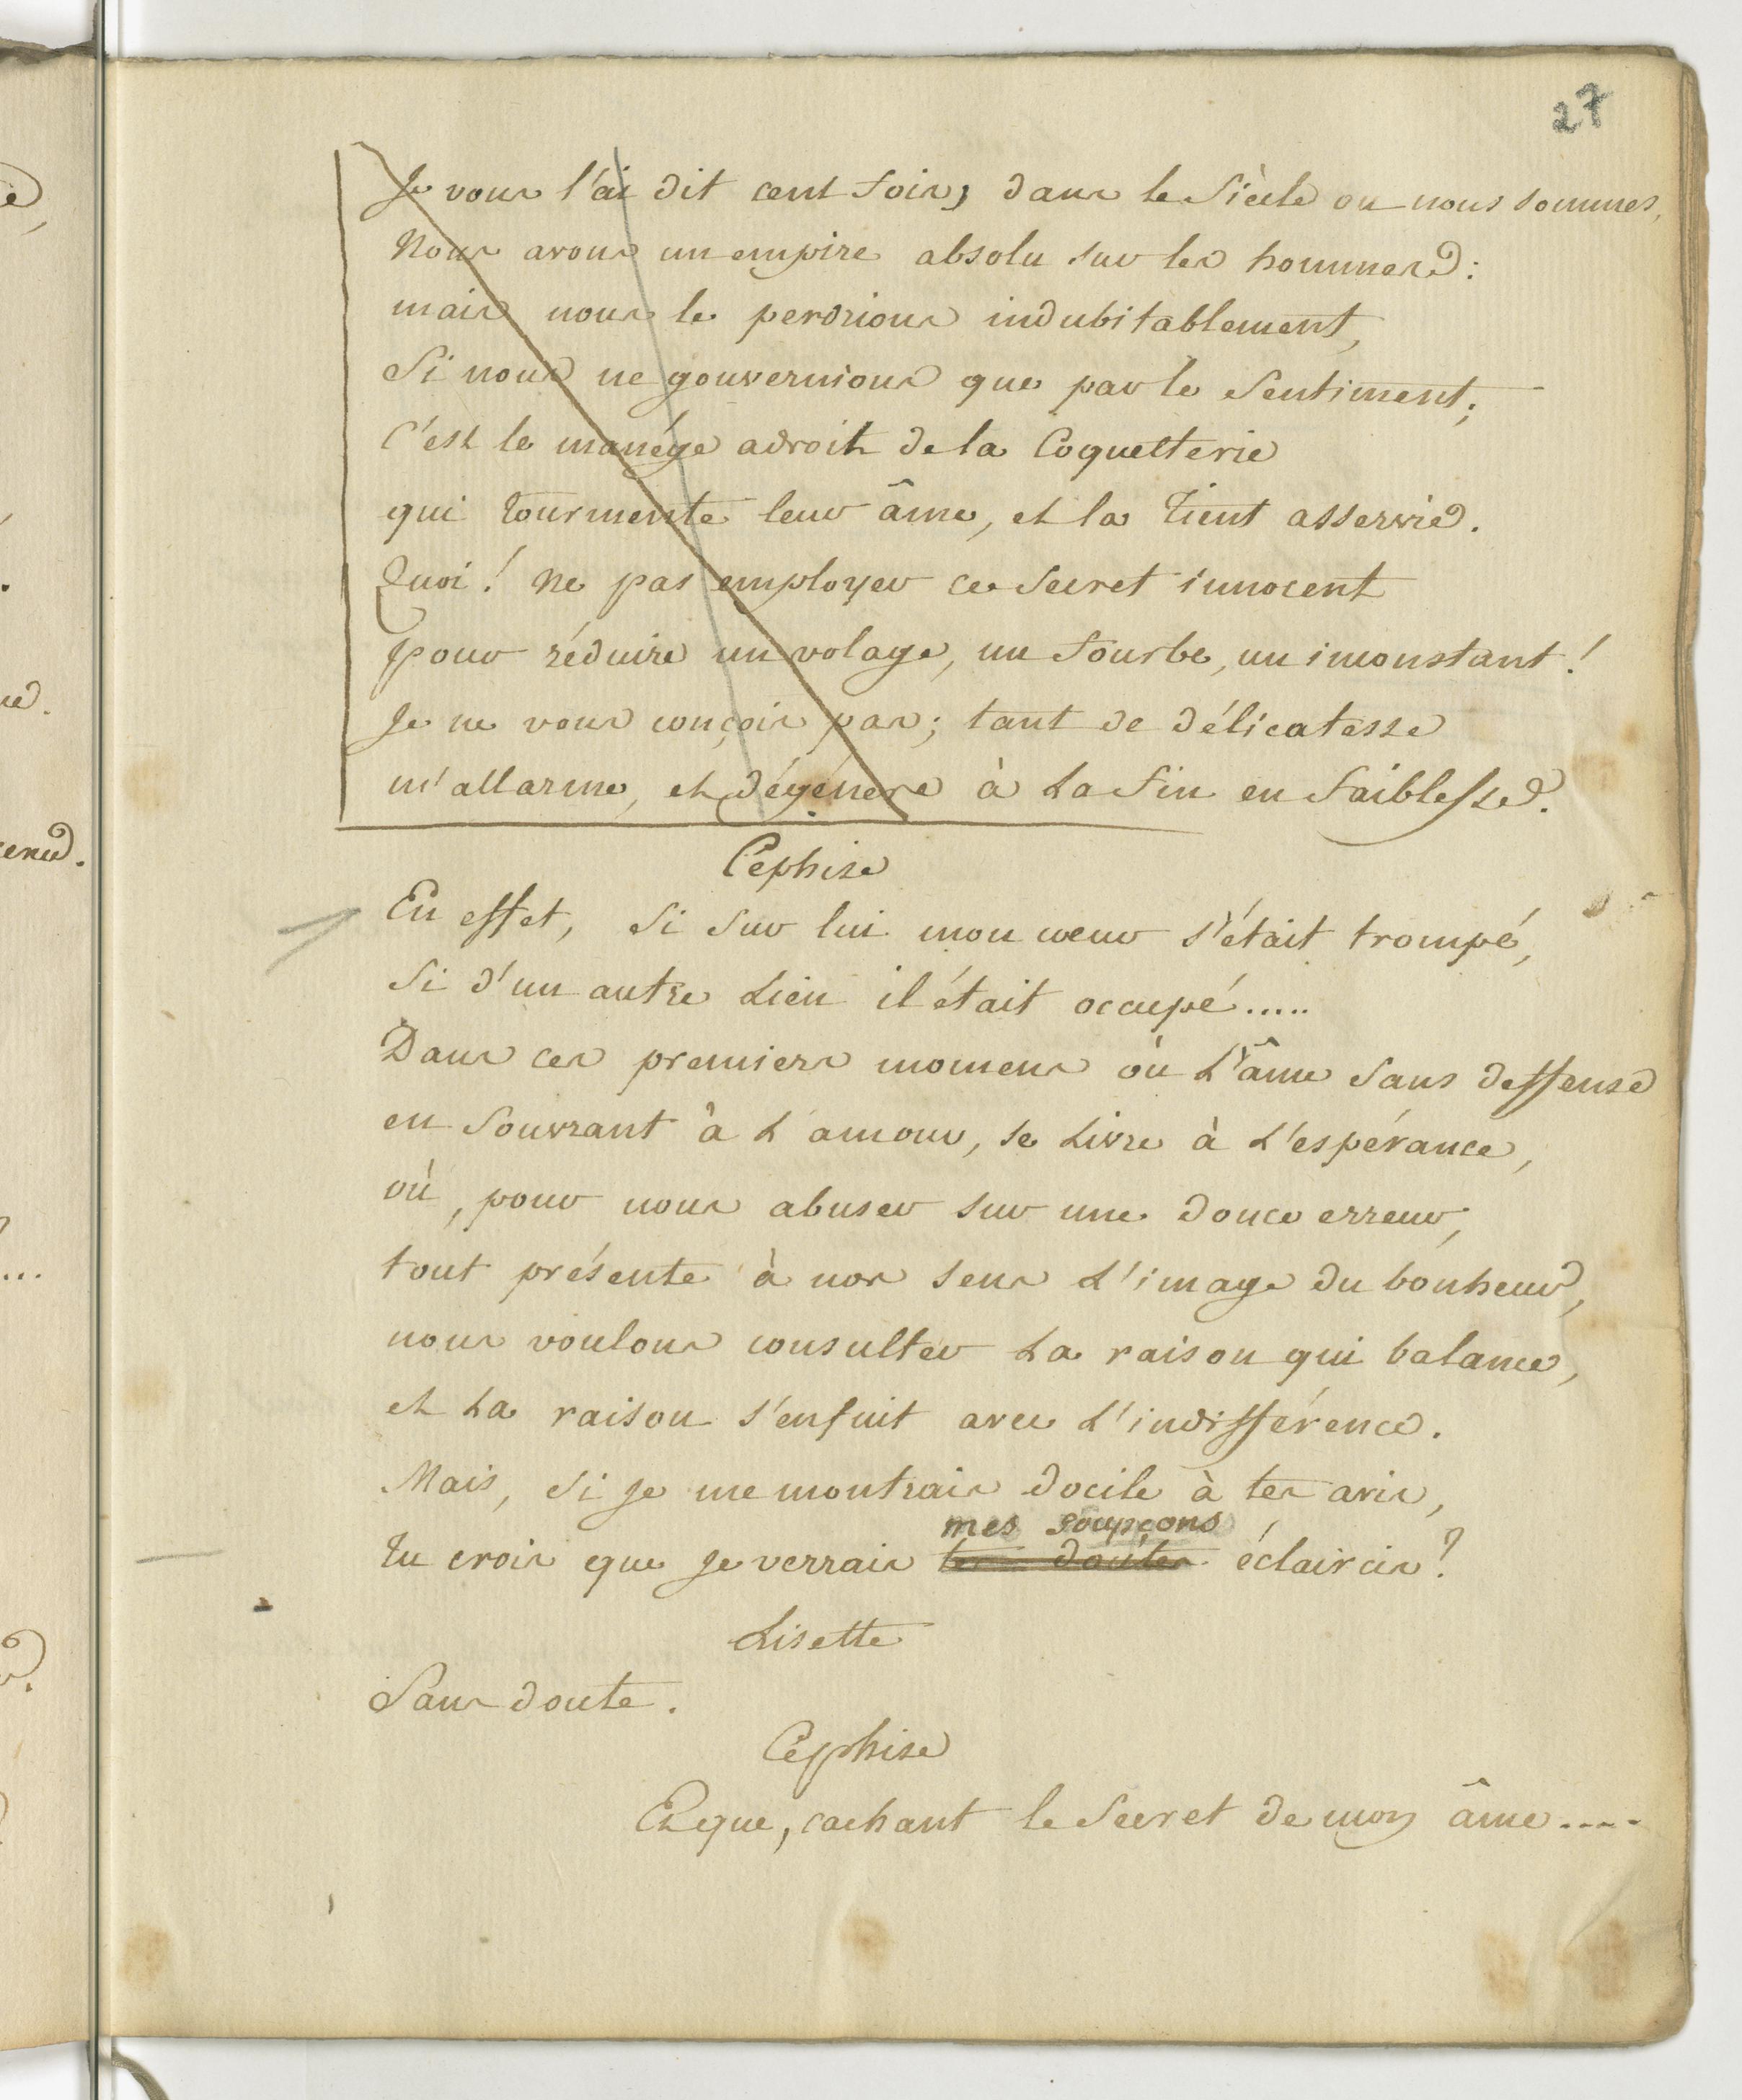 27
Je vous l'ai dit cent fois, dans le Siècle ou nous sommes,
Nous avons un empire absolu sur les hommes:
mais nous le perdrions indubitablement,
Si nous ne gouvernions que par le Sentiment;
C'est le manége adroit de la Coquetterie
qui tourmente leur âme, et la tient asservie.
Quoi! Ne pas employer ce Secret innocent
pour réduire un volage, un fourbe, un inconstant!
Je ne vous conçois pas; tant de délicatesse
m'allarme, et dégénere à La fin en faiblesse.
Céphise
En effet, Si Sur lui mon coeur s'était trompé,
Si d'un autre Lien il était occupé.....
Dans ces premiers momens où L'âme Sans deffense
en S'ouvrant à L'amour, se Livre à L'espérance,
où, pour nous abuser sur une douce erreur,
tout présente à nos sens L'image du bonheur,
nous voulons consulter La raison qui balance,
et La raison s'enfuit avec L'indifférence.
Mais, Si je me montrais docile à tes avis,
mes soupçons
Tu crois que je verrais tes doutes éclaircis?
Lisette
Sans doute.
Céphise
Et que, cachant le Secret de mon âme....